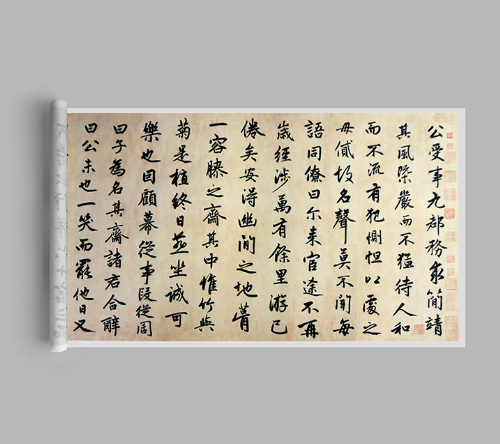 公受事九郡務求簡靖
其風際嚴而不猛待人和
而不流有犯惻怛以處之
毋貳故名聲莫不聞每
語同僚曰尔来官途不再
歲經涉萬有餘里游已
倦矣安得幽閒之地葺
一容膝之齋其中惟竹與
菊是植終日燕坐誠可
樂也因顧幕從事段從周
曰子為名其齋諸君合辭
曰公未也一笑而罷他日又